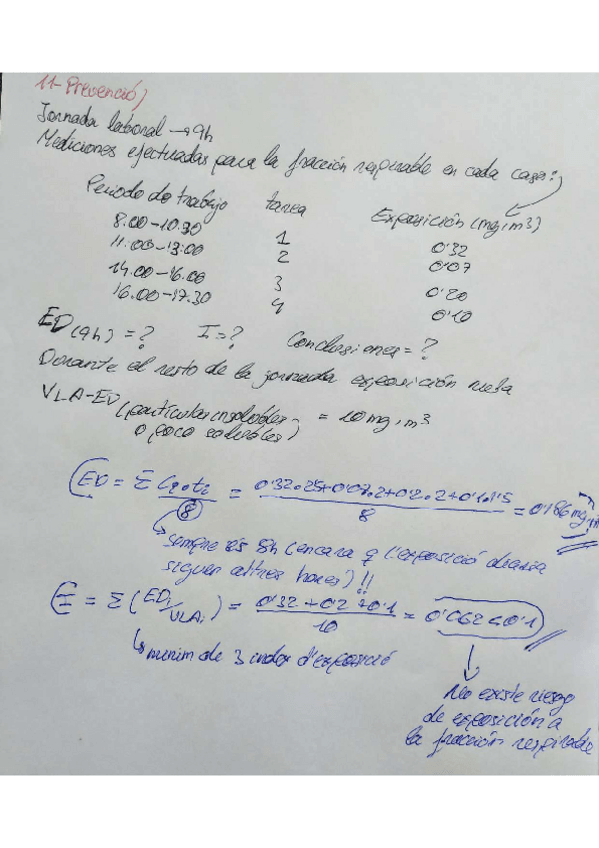 11-Prevenció)
Jornada laboral → 9h
Mediciones efectuadas para la fracción respirable en cada caso:
Periodo de trabajo tarea Exposición (mg/m3)
8.00-10.30 1 0'32
11.00-13:00 2 0'07
14.00-16.00 3 0'20
16.00-17.30 4 0'10
ED(9h) = ? I = ? Conclusiones = ?
Durante el resto de la jornada exposición nula
VLA-ED (partículas insolubles o poco solubles) = 10 mg/m3
ED = Σ Ci·ti / 8 = 0'32·2'5+0'07·2+0'2·2+0'1·1'5 / 8 = 0'186 mg/m3
↳ sempre és 8h (encara q l'exposició diaria
siguen altres hores) !!
I = Σ (EDi/VLAi) = 0'32+0'2+0'1 / 10 = 0'062<0'1
↳ minim de 3 index d'exposició
No existe riesgo
de exposición a
la fracción respirable